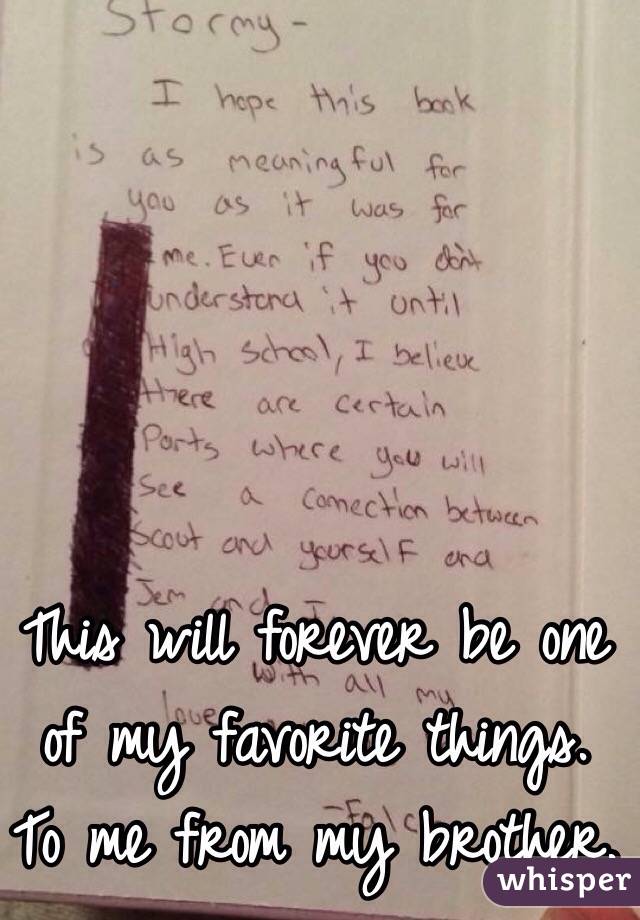 Stormy -
I hope this book
is as meaningful for
you as it was for
me. Even if you don't
understand it until
High School, I believe
there are certain
Parts where you will
See a connection between
Scout and yourself and
Jem and I.
This will forever be one
With all my
love
of my favorite things.
To me from my brother.
whisper